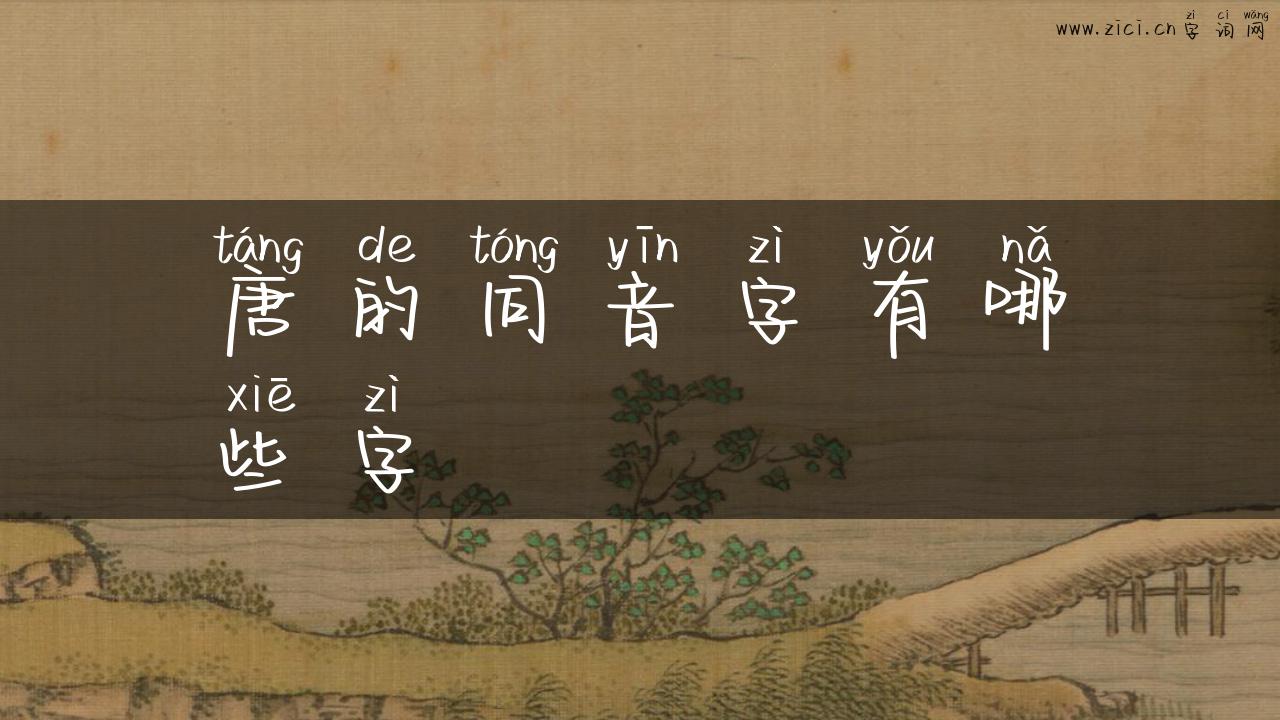 zì cí wǎng
www.zici.cn 字 词 网
táng de tóng yīn zì yǒu nǎ
唐 的 同 音 字 有 哪
xiē zì
些 字